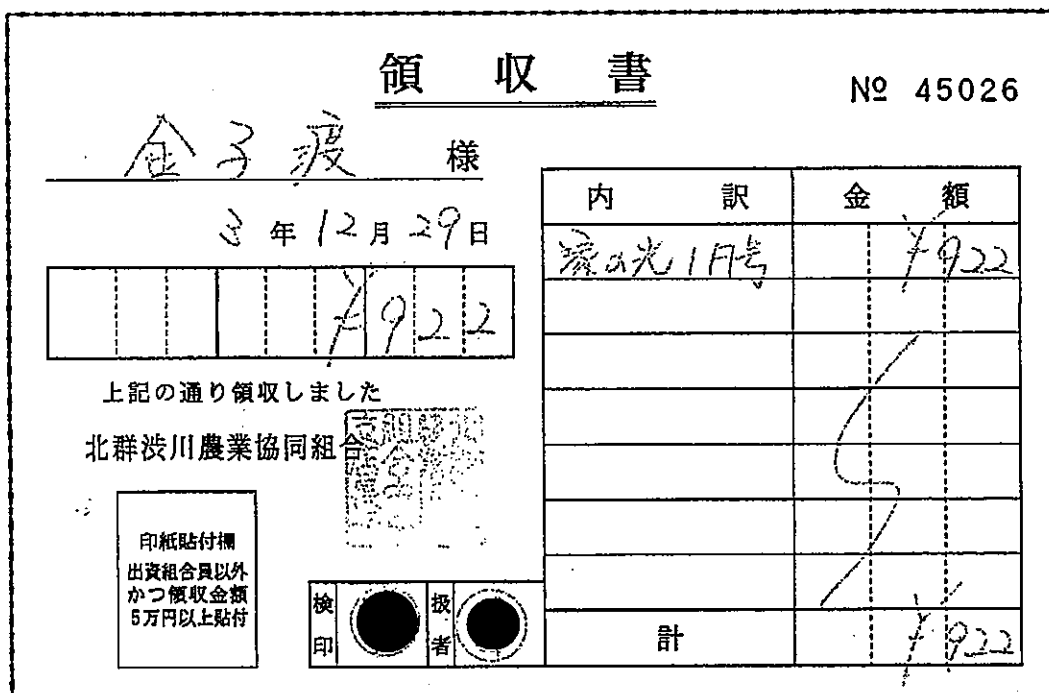 領収書
№ 45026
金子渡 様
3年12月29日
¥922
上記の通り領収しました
北群渋川農業協同組合
印紙貼付欄
出資組合員以外
かつ領収金額
5万円以上貼付
検印
扱者
内訳 金額
家の光1月号 ¥922
計 ¥922